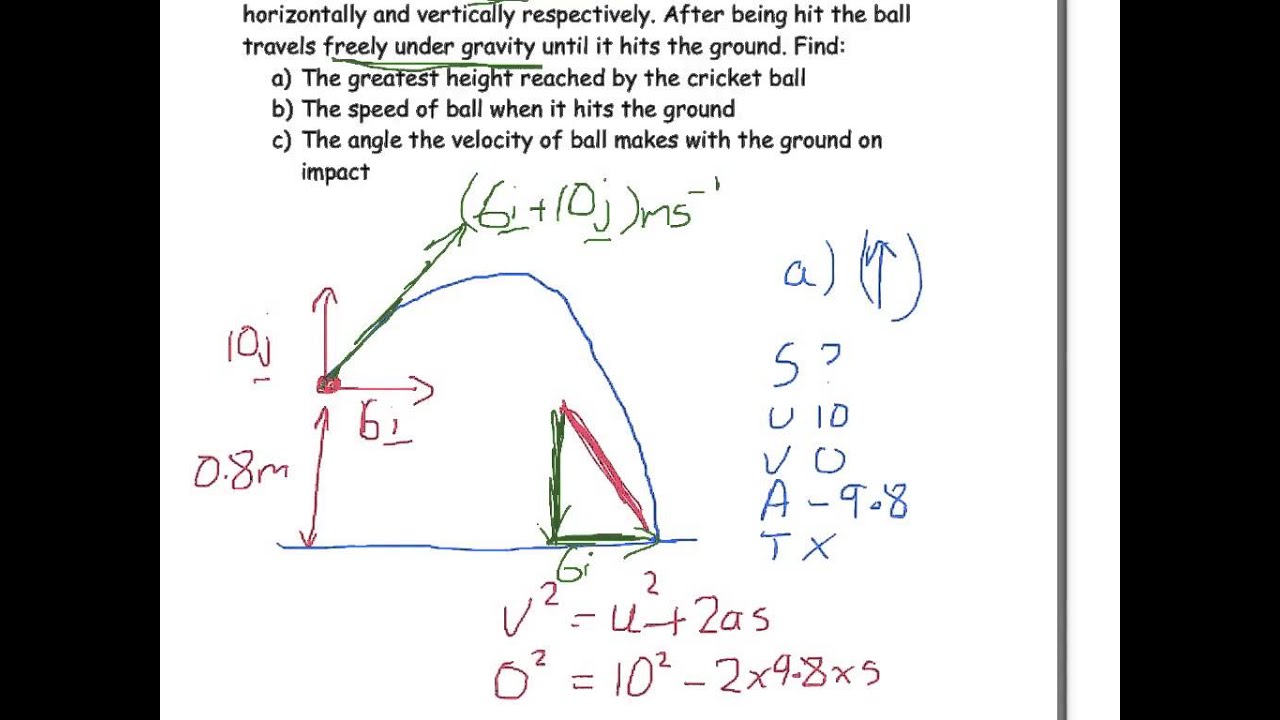 horizontally and vertically respectively. After being hit the ball
travels freely under gravity until it hits the ground. Find:
a) The greatest height reached by the cricket ball
b) The speed of ball when it hits the ground
c) The angle the velocity of ball makes with the ground on
impact
(6i+10j)ms⁻¹
a) (↑)
10j
S ?
6i
U 10
0.8m
V 0
A -9.8
T X
6i
v² = u² + 2as
0² = 10² - 2x9.8xs